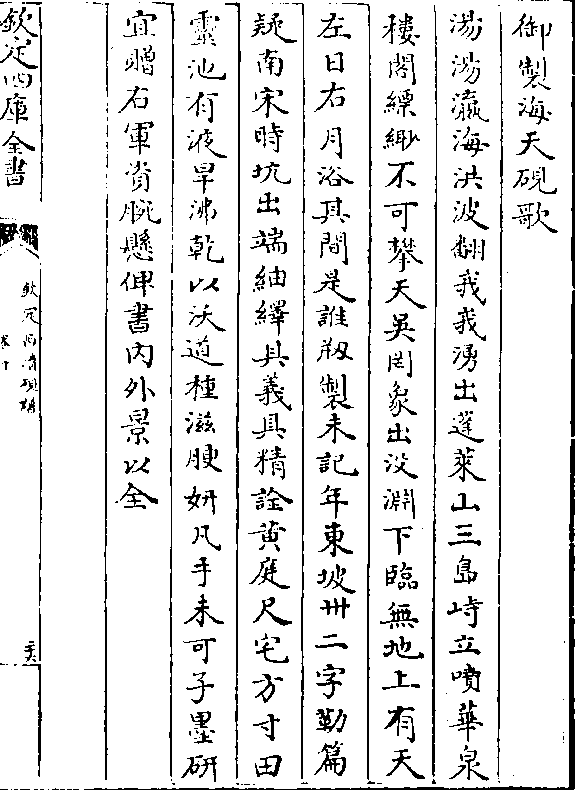 御製海天硯歌
湯湯瀛海洪波翻我我湧出蓬萊山三島峙立噴華泉
樓閣縹緲不可攀天吳罔象出没淵下臨無地上有天
左日右月浴其間是誰剏製未記年東坡卅二字勒篇
疑南宋時坑出端紬繹其義具精詮黄庭尺宅方寸田
靈池有液旱沸乾以沃道種滋腴妍凡手未可子墨研
宜贈右軍資腕懸俾書内外景以全
欽定四庫全書
欽定西清硯譜
卷十